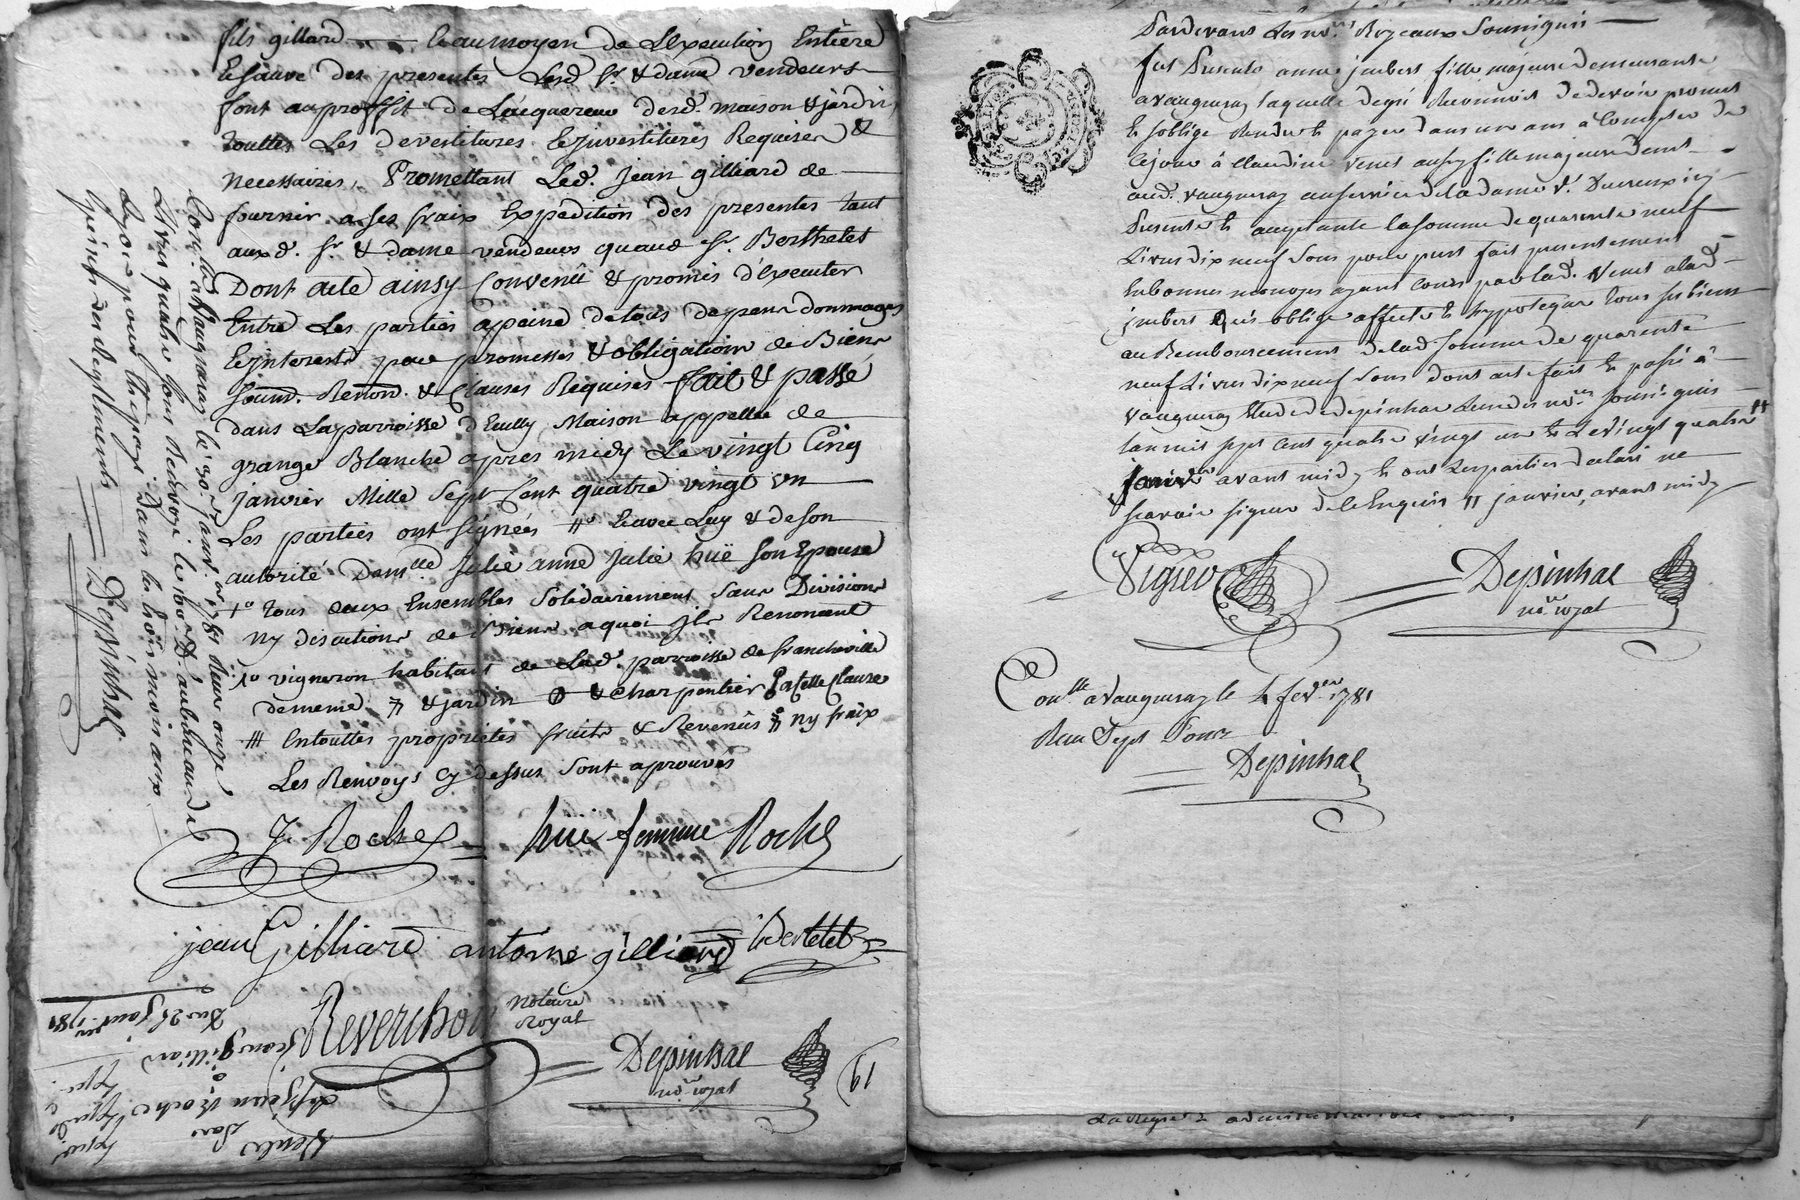 fils gillard —— Et au moyen de L'Execution Entiere
des presentes Lesd. Sr. & dame vendeurs
font au proffit de L'acquereur desd. maison & jardin
touttes Les devestitures & jnvestitures Requises &
Necessaires, Promettant Led. jean gilliard de
fournir a ses fraix Expedition des presentes tant
auxd. Sr. & dame vendeurs quaud. Sr. Berthelet
Dont acte ainsy Convenü & promis d'Executer
Entre Les parties apeine de tous depens dommages
& jnterests par promesses & obligations de Biens
soum. Renon. & Clauses Requises fait & passé
dans La parroisse d'Ecully Maison appellée de
grange Blanche apres midy Le vingt Cinq
janvier Mille Sept Cent quatre vingt un
Les parties ont signées Et avec Luy & de son
autorité Dame Julie anne julie huë son Epouse
tous deux Ensembles Solidairement Sans Division
ny discution de Biens a quoi jls Renoncent
vigneron habitant de Lad. parroisse de francheville
dememe & jardin & charpentier Cette Clause
Entouttes proprietés fruits & Revenus ny fraix
Les Renvoys cy dessus sont aprouvés
J. Roche
huë femme Roche
jean Gilliard antoine gilliard Bertelet
Reverchon Notaire
Royal
Depinhac
no.re royal
61
Con.lé a Vaugneray le 30 janv. 1781 Reçu onze
Livres quatre sous
pour dans les trois mois aux
peines des Reglements
Depinhac
Vente
Par
Sr jean Roche
a
jean gilliard
Du 25 janv. 1781
Pardevant Les no.res Royeaux Soussignés
fut Presente anne jmbert fille majeure demeurante
a vaugneray laquelle degré Reconnoit de devoir promet
& s'oblige Rendre & payer dans un ans à Compter de
Cejour à Claudine Venet aussy fille majeure dem.t
aud. vaugneray au service de la dame
Presente & acceptante la somme de quarente neuf
Livres dix neuf Sous pour pret fait presentement
En bonnes monoyes ayant Cours par lad. Venet a lad.
jmbert qui oblige affecte & hypoteque tous ses biens
au Remboursement de lad. somme de quarente
neuf Livres dix neuf Sous dont acte fait & passé à
vaugneray Etude de depinhac L'un des no.res soussignés
lan mil sept cent quatre vingt un & Le vingt quatre
janvier avant midy & ont Les parties declaré ne
scavoir signer de ce Enquis janvier, avant midy
Vigier
Depinhac
no.re royal
Con.lle a vaugneray le 4 fev.er 1781
Reçu Sept Sous
Depinhac